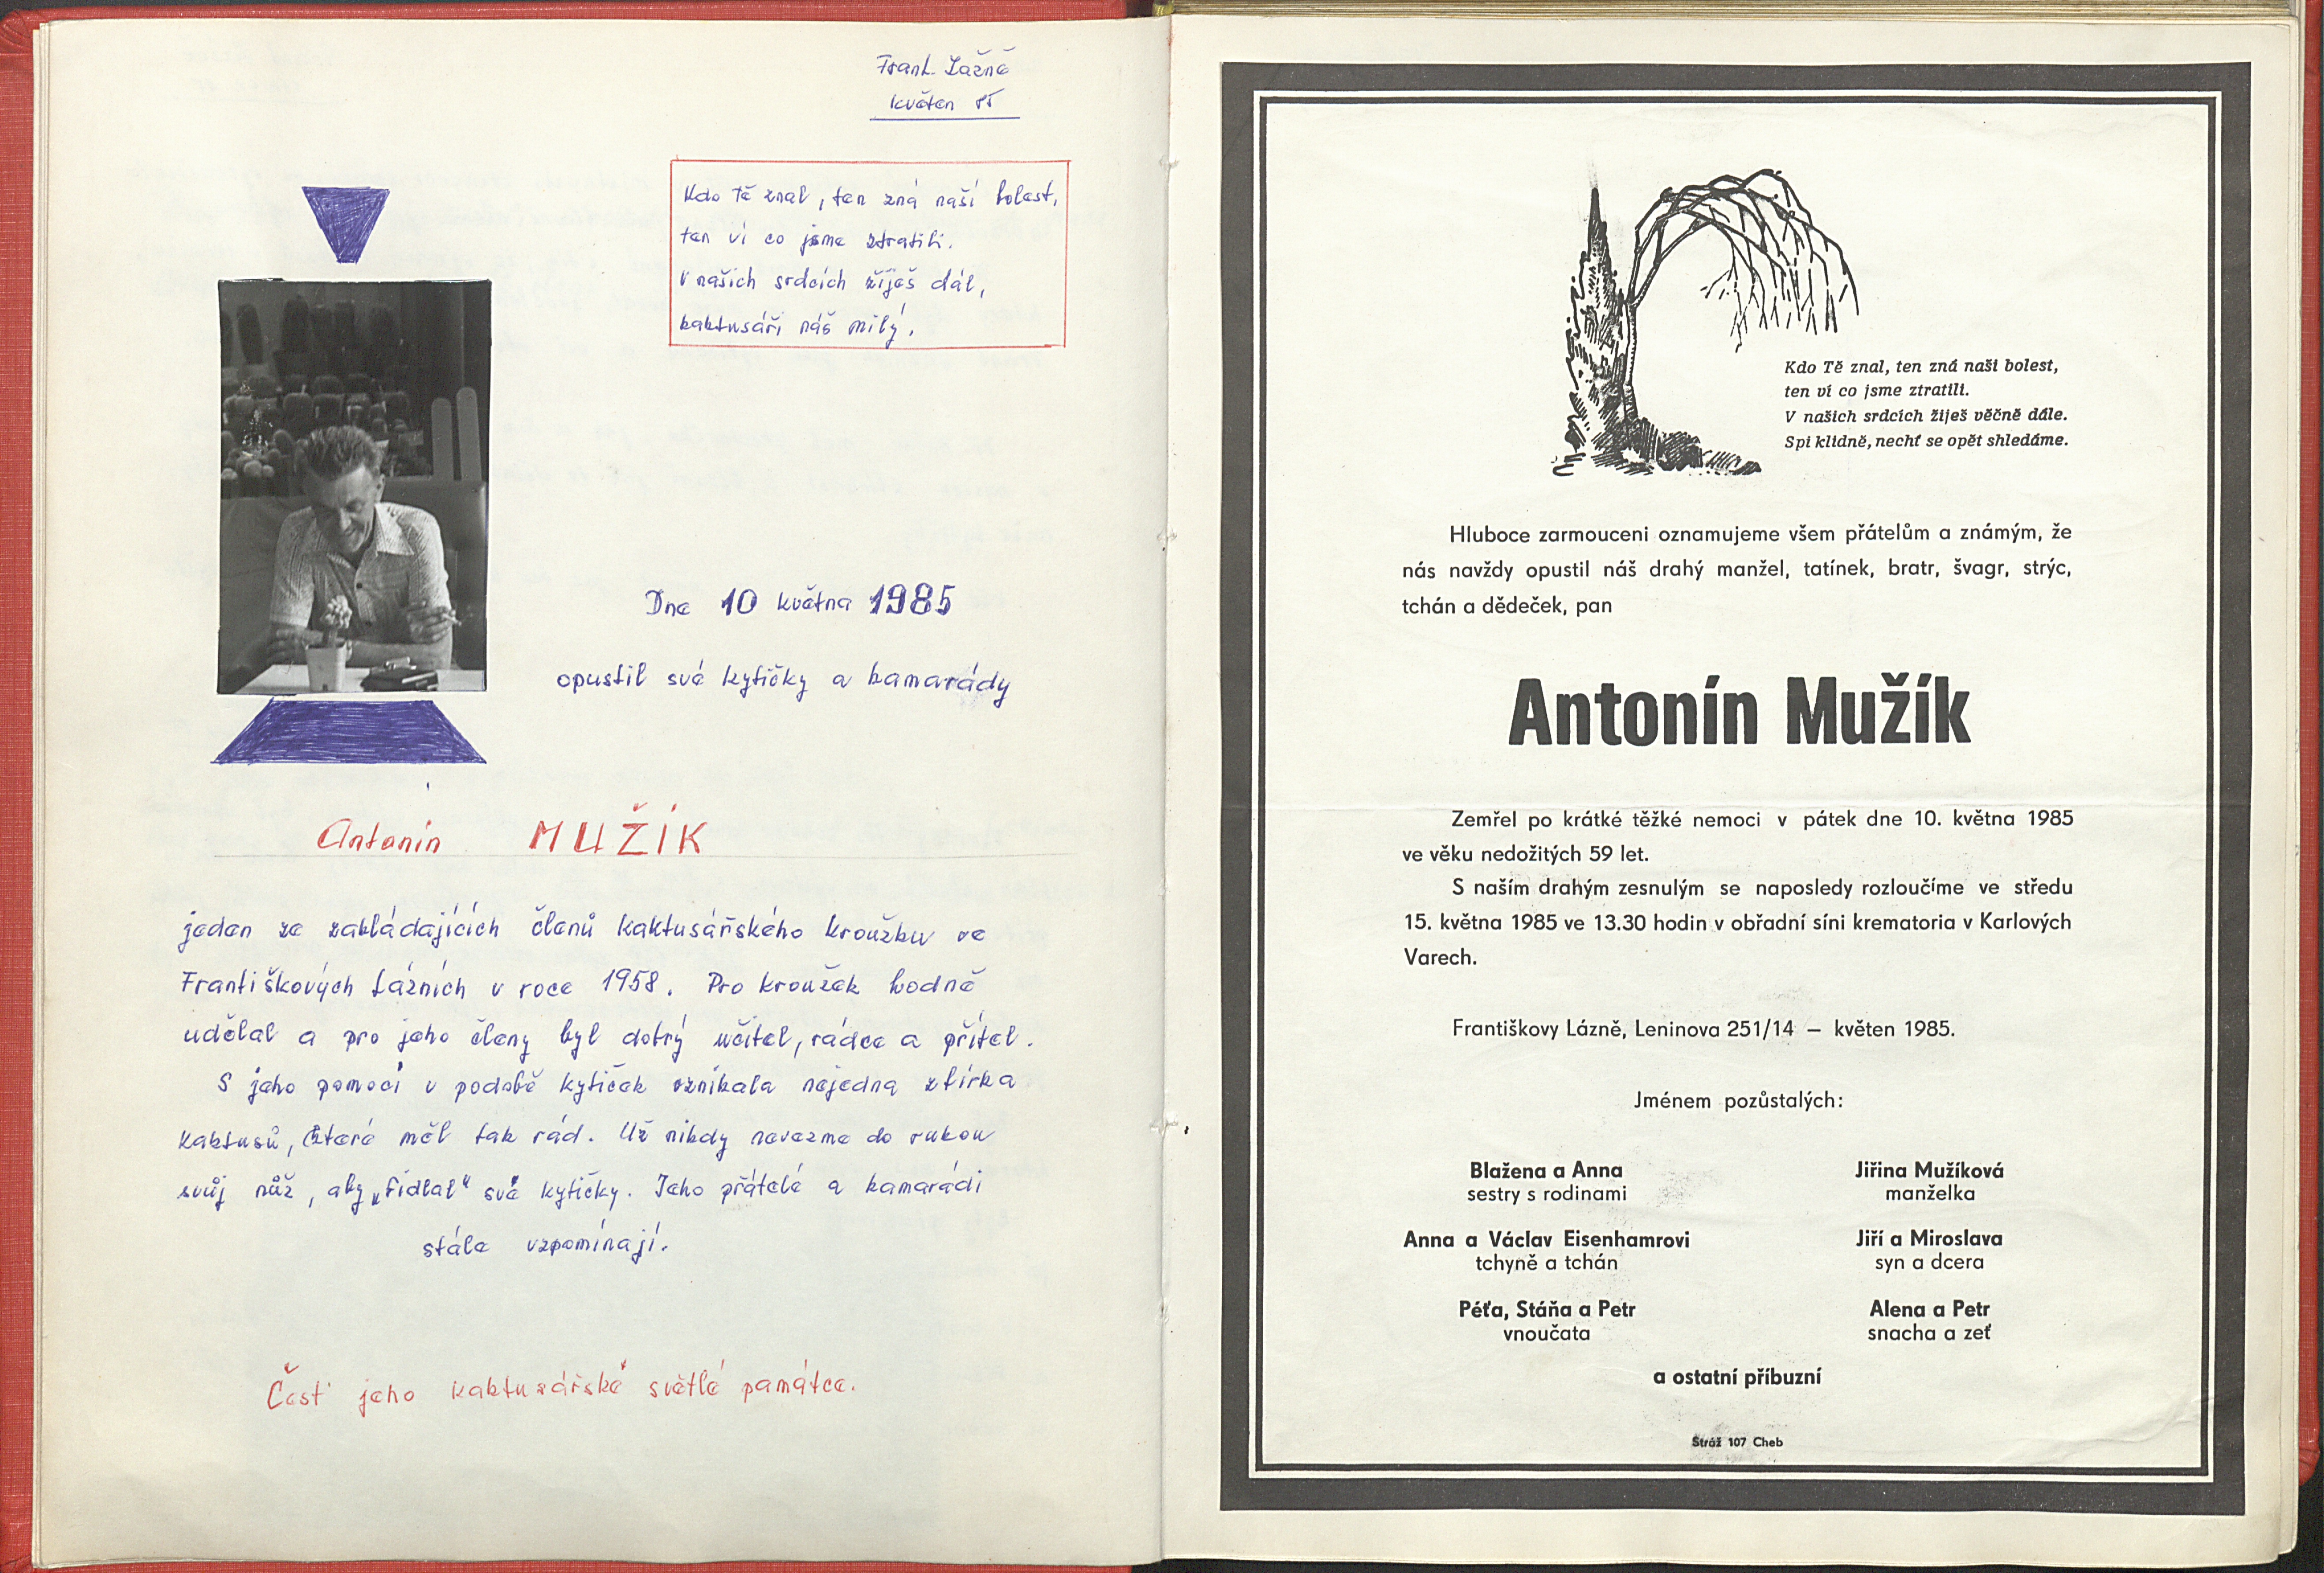 Frant. Lázně
květen 85
Kdo Tě znal, ten zná naší bolest,
ten ví co jsme ztratili.
V našich srdcích žiješ dál,
kaktusáři náš milý.
Dne 10 května 1985
opustil své kytičky a kamarády
Antonín MUŽÍK
jeden ze zakládajících členů kaktusářského kroužku ve
Františkových Lázních v roce 1958. Pro kroužek hodně
udělal a pro jeho členy byl dobrý učitel, rádce a přítel.
S jeho pomocí v podobě kytiček vznikala nejedna sbírka
kaktusů, které měl tak rád. Už nikdy nevezme do rukou
svůj nůž, aby „fidlal“ své kytičky. Jeho přátelé a kamarádi
stále vzpomínají.
Čest jeho kaktusářské světlé památce.
Kdo Tě znal, ten zná naši bolest,
ten ví co jsme ztratili.
V našich srdcích žiješ věčně dále.
Spi klidně, nechť se opět shledáme.
Hluboce zarmouceni oznamujeme všem přátelům a známým, že
nás navždy opustil náš drahý manžel, tatínek, bratr, švagr, strýc,
tchán a dědeček, pan
Antonín Mužík
Zemřel po krátké těžké nemoci v pátek dne 10. května 1985
ve věku nedožitých 59 let.
S naším drahým zesnulým se naposledy rozloučíme ve středu
15. května 1985 ve 13.30 hodin v obřadní síni krematoria v Karlových
Varech.
Františkovy Lázně, Leninova 251/14 — květen 1985.
Jménem pozůstalých:
Blažena a Anna
sestry s rodinami
Jiřina Mužíková
manželka
Anna a Václav Eisenhamrovi
tchyně a tchán
Jiří a Miroslava
syn a dcera
Péťa, Stáňa a Petr
vnoučata
Alena a Petr
snacha a zeť
a ostatní příbuzní
Stráž 107 Cheb